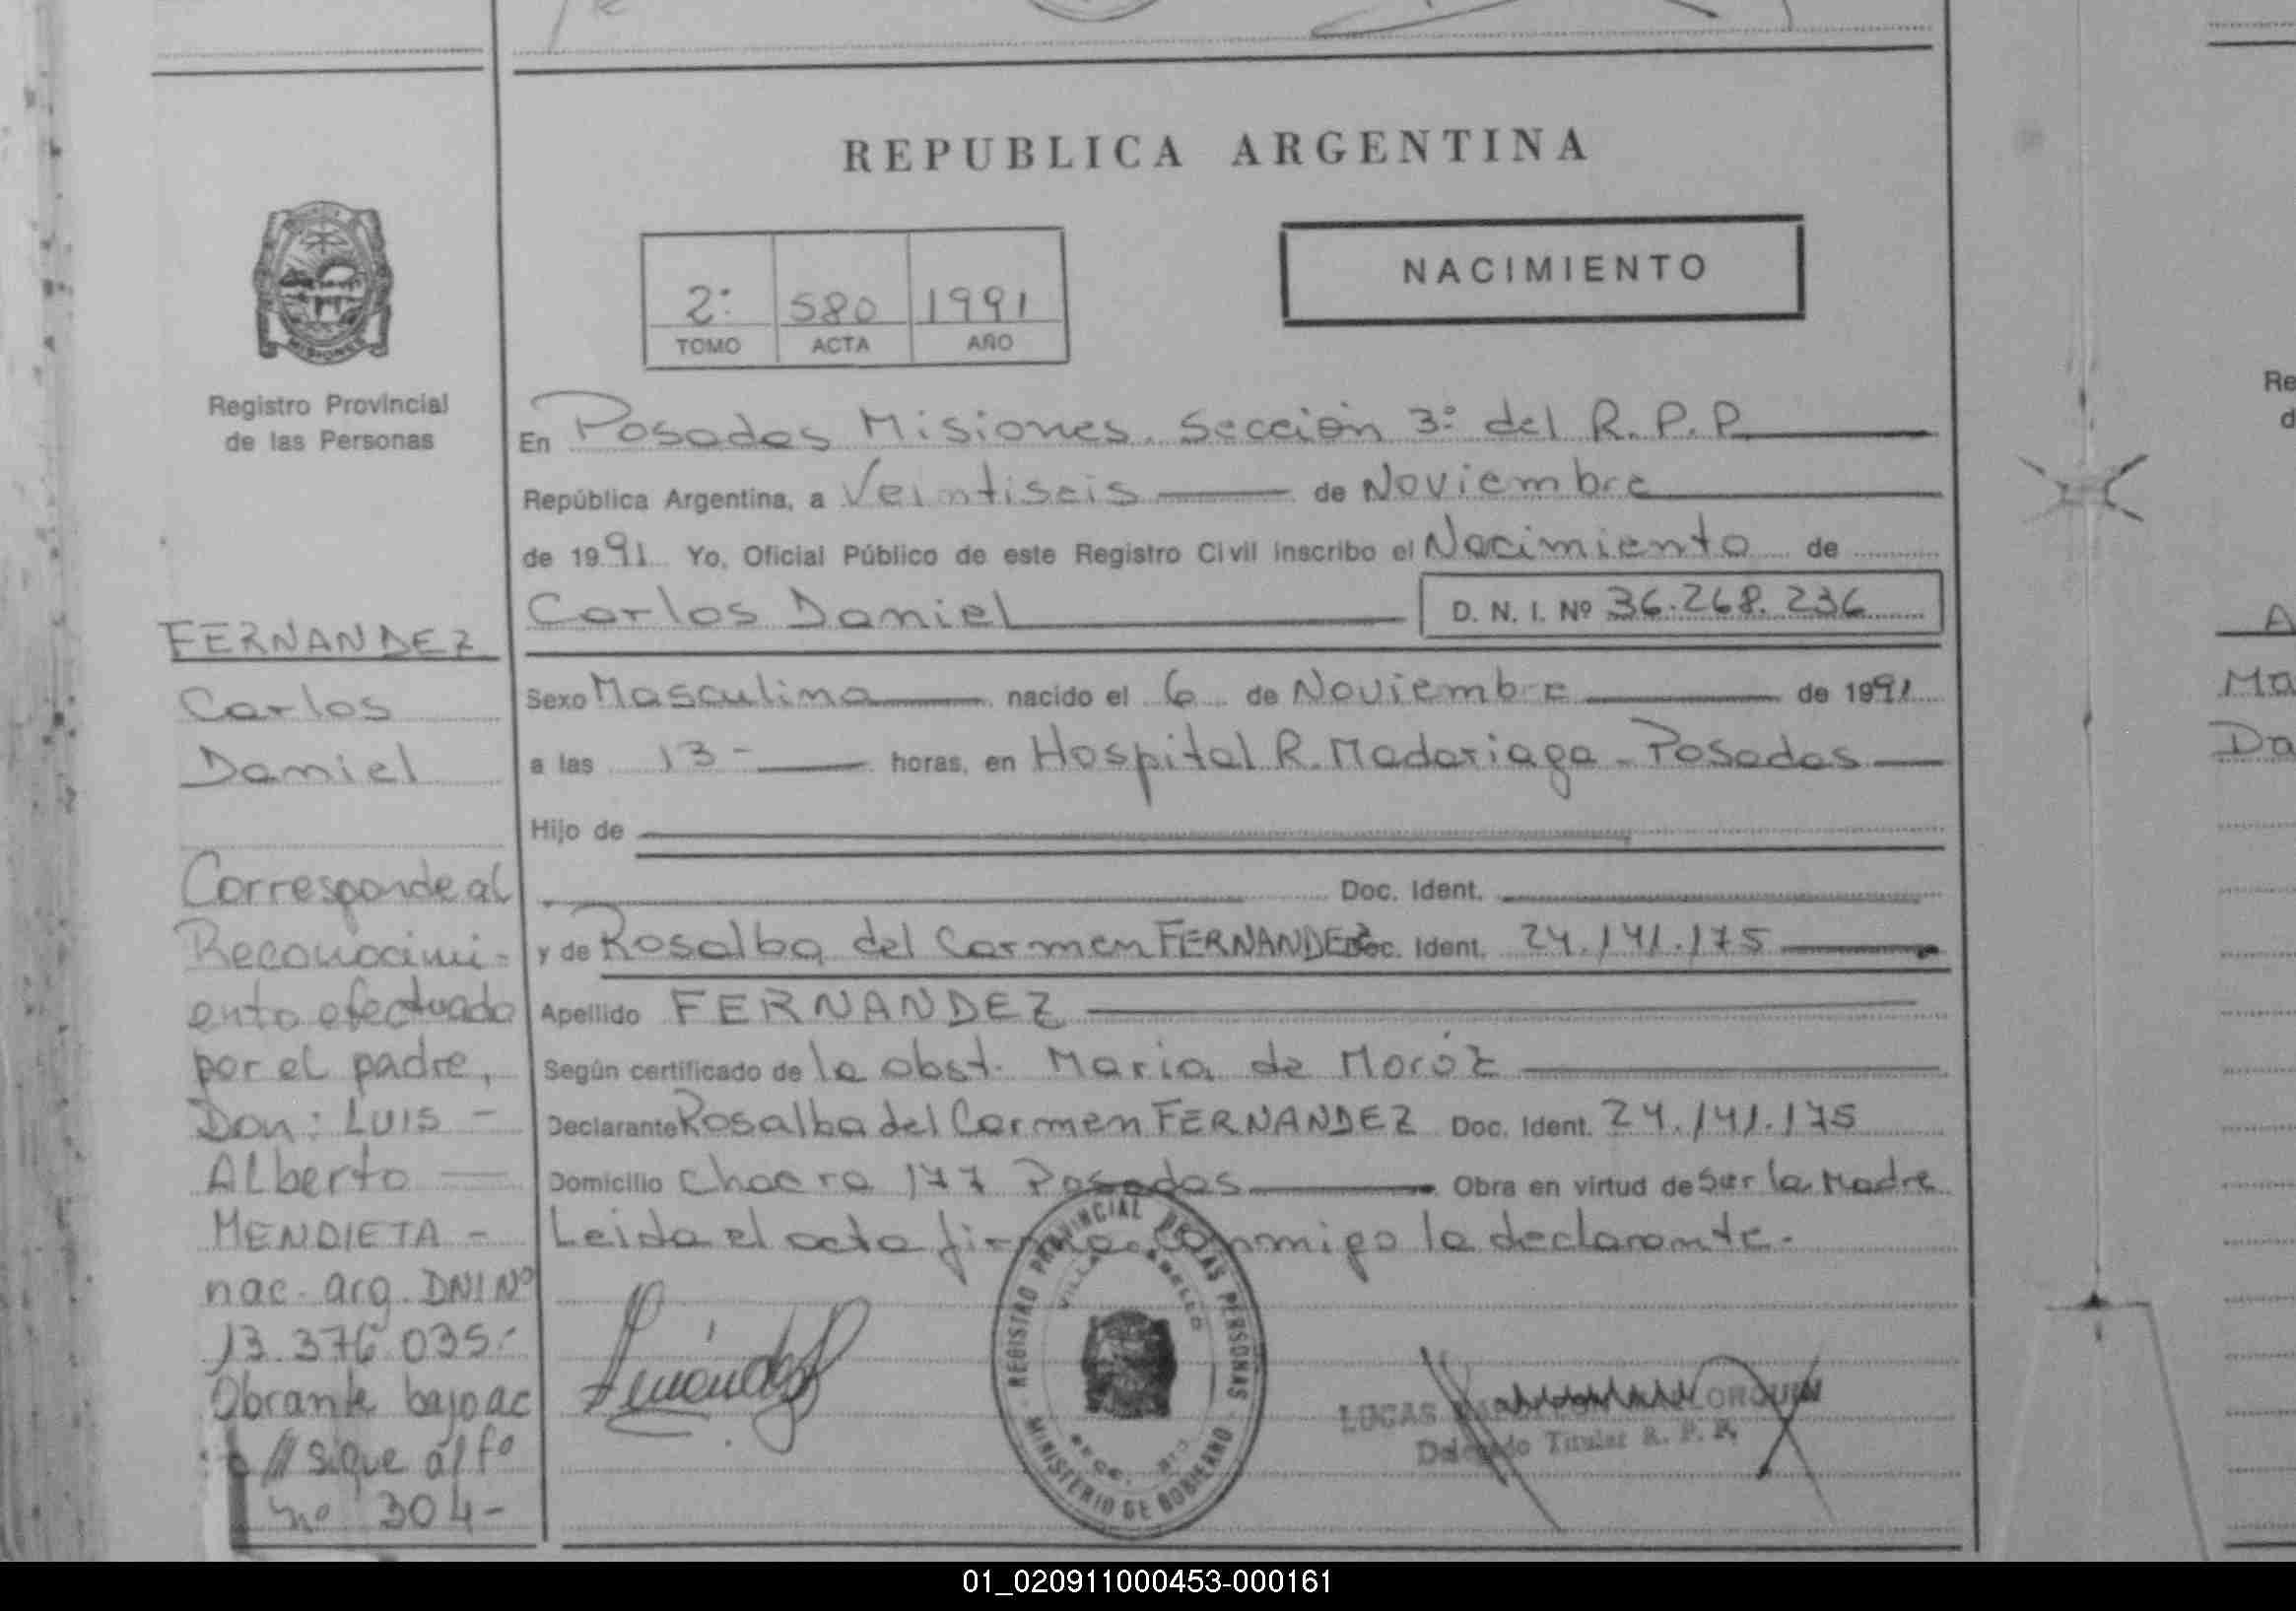 REPUBLICA ARGENTINA
MISIONES
Registro Provincial
de las Personas
2º
580
1991
TOMO
ACTA
AÑO
NACIMIENTO
En Posadas Misiones. Sección 3º del R.P.P.
República Argentina, a Veintiseis de Noviembre
de 1991 Yo, Oficial Público de este Registro Civil inscribo el Nacimiento de
Carlos Daniel D. N. I. Nº 36.268.236
Sexo Masculino nacido el 6 de Noviembre de 1991
a las 13- horas, en Hospital R. Madariaga - Posadas
Hijo de
Doc. Ident.
y de Rosalba del Carmen FERNANDEZ Doc. Ident. 24.141.175
Apellido FERNANDEZ
Según certificado de la obst. Maria de Moróz
Declarante Rosalba del Carmen FERNANDEZ Doc. Ident. 24.141.175
Domicilio Chacra 177 Posadas Obra en virtud de ser la Madre
Leida el acta firma conmigo la declarante.
FERNANDEZ
Carlos
Daniel
Corresponde al
Reconocimi-
ento efectuado
por el padre,
Don: LUIS -
Alberto
MENDIETA -
nac. arg. DNI Nº
13.376.035.-
Obrante bajo ac
// sigue al fº
nº 304-
Fernandez
REGISTRO PROVINCIAL DE LAS PERSONAS
MINISTERIO DE GOBIERNO
VILLA CABELLO
SECC. 3º
LUCAS
Delegado Titular R. P. P.
Re
d
A
Ma
Da
01_020911000453-000161